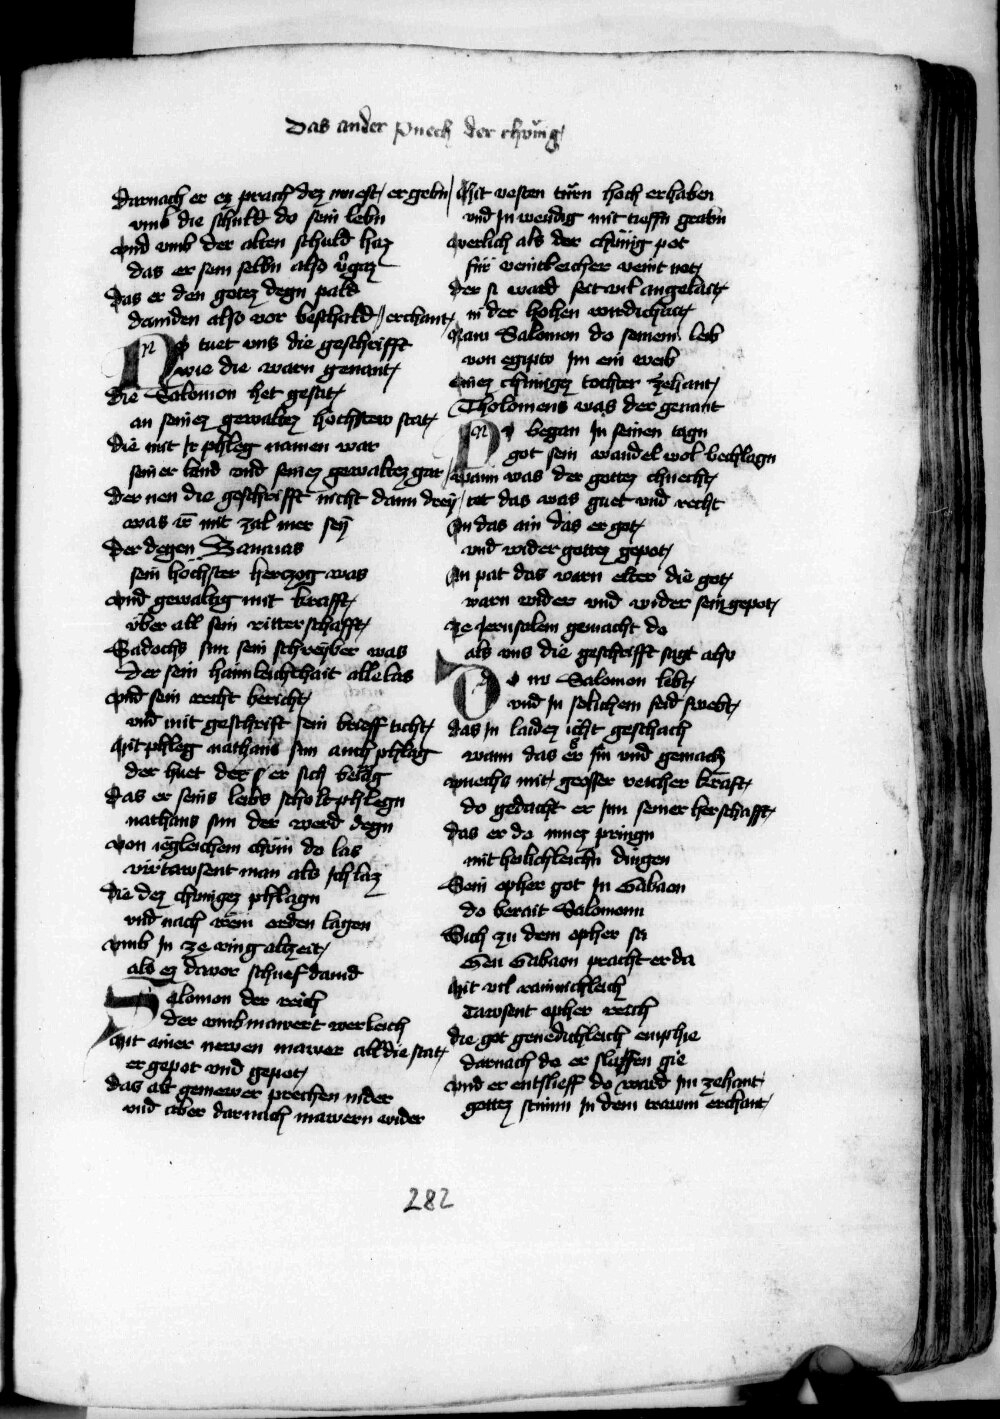 Das ander Puech der chünig
Darnach er ez prach dez muest er gebn
vmb die schuld do sein lebn
vnd vmb der alten schuld haz
das er sein selbn also v̈gaz
Das er den gotez degn pald
Dauiden also vor beschald / erchant
Nv tuet vns die geschrifft
wie die warn genant
die Salomon het gesat
an seinez gewaltez höchstew stat
die mit Ir phleg namen war
seiner land vnd seinez gewaltez gar
der nen die geschrifft nicht dann dreÿ
was ir mit zal mer seÿ
Der degen Bananas
sein höchster herczog was
vnd gewaltig mit krafft
über all sein ritterschafft
Sadochs sun sein schreyber was
Der sein haimleichchait alle las
vnd sein recht bericht
vnd mit geschrift sein brieff ticht
Mit phleg nathans sun auch phlag
der huet der er sich belag
Das er seins leibs scholt phlegn
nathans sun der werd degn
von iegleichem chün do las
virtawsent man als ich laz
die dez chunigez phlagn
vnd nach irem orden lagen
vmb In ze ring alczeit
als ez davor schuef dauid
Salomon der reich
der vmbmawert werleich
Mit ainer newen mawer all die stat
er gepot vnd gepot
das alt gemewer prechen nider
vnd aber darnach mawern wider
Mit vesten türn hoch erhaben
vnd In wendig mit tieffn grabn
werlich als der chünig pot
für veintleicher veint not
der si ward seit vil angelait
in der hohen wirdichait
Nam Salomon do seinem leb
von egipto Im ein weib
ainez chunigez tochter zehant
Tholomeus was der genant
Nv began In seinen tagn
got sein wandel wol bechlagn
wann was der gottez chnecht
tet das was guet vnd recht
An das ain das er got
vnd wider gottez gepot
An pat das warn elter die got
warn wider vnd wider sein gepot
ze Jerusalem gemacht do
als vns die geschrifft sagt also
Do nv Salomon lebt
vnd In solichem seid swebt
das In laidez icht geschach
wann das er sin vnd gemach
wuechs mit grosser reicher kraft
do gedacht er sun seiner herschafft
das er do muez pringn
mit heilichleichn dingen
Sein opher got In Gabaon
do berait Salomonn
Sich zu dem opher sa
Gen Gabaon pracht er da
Mit vil rainichleich
Tawsent opher reich
die got genedichleich emphie
darnach do er slaffen gie
vnd er entslieff do ward im zehant
gottez stimm In dem trawm erchant
282